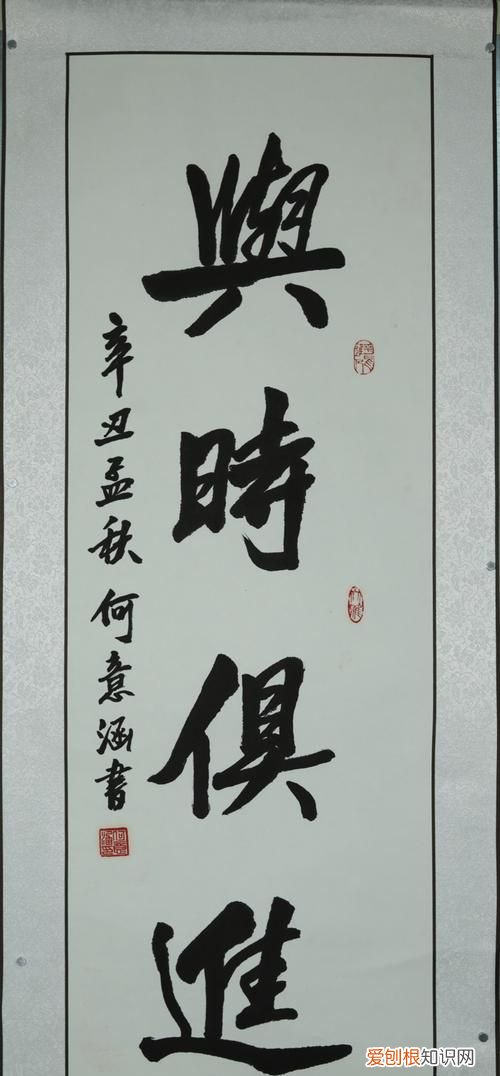 與時俱進
辛丑孟秋何意涵書
爱刨根知识网